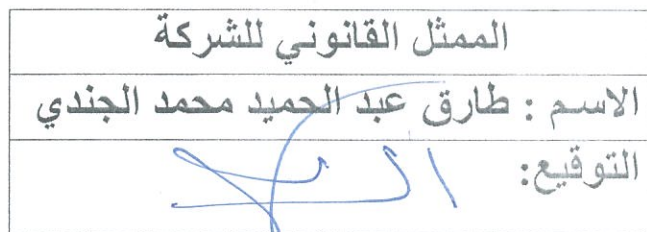 الممثل القانوني للشركة
الاسم : طارق عبد الحميد محمد الجندي
التوقيع: